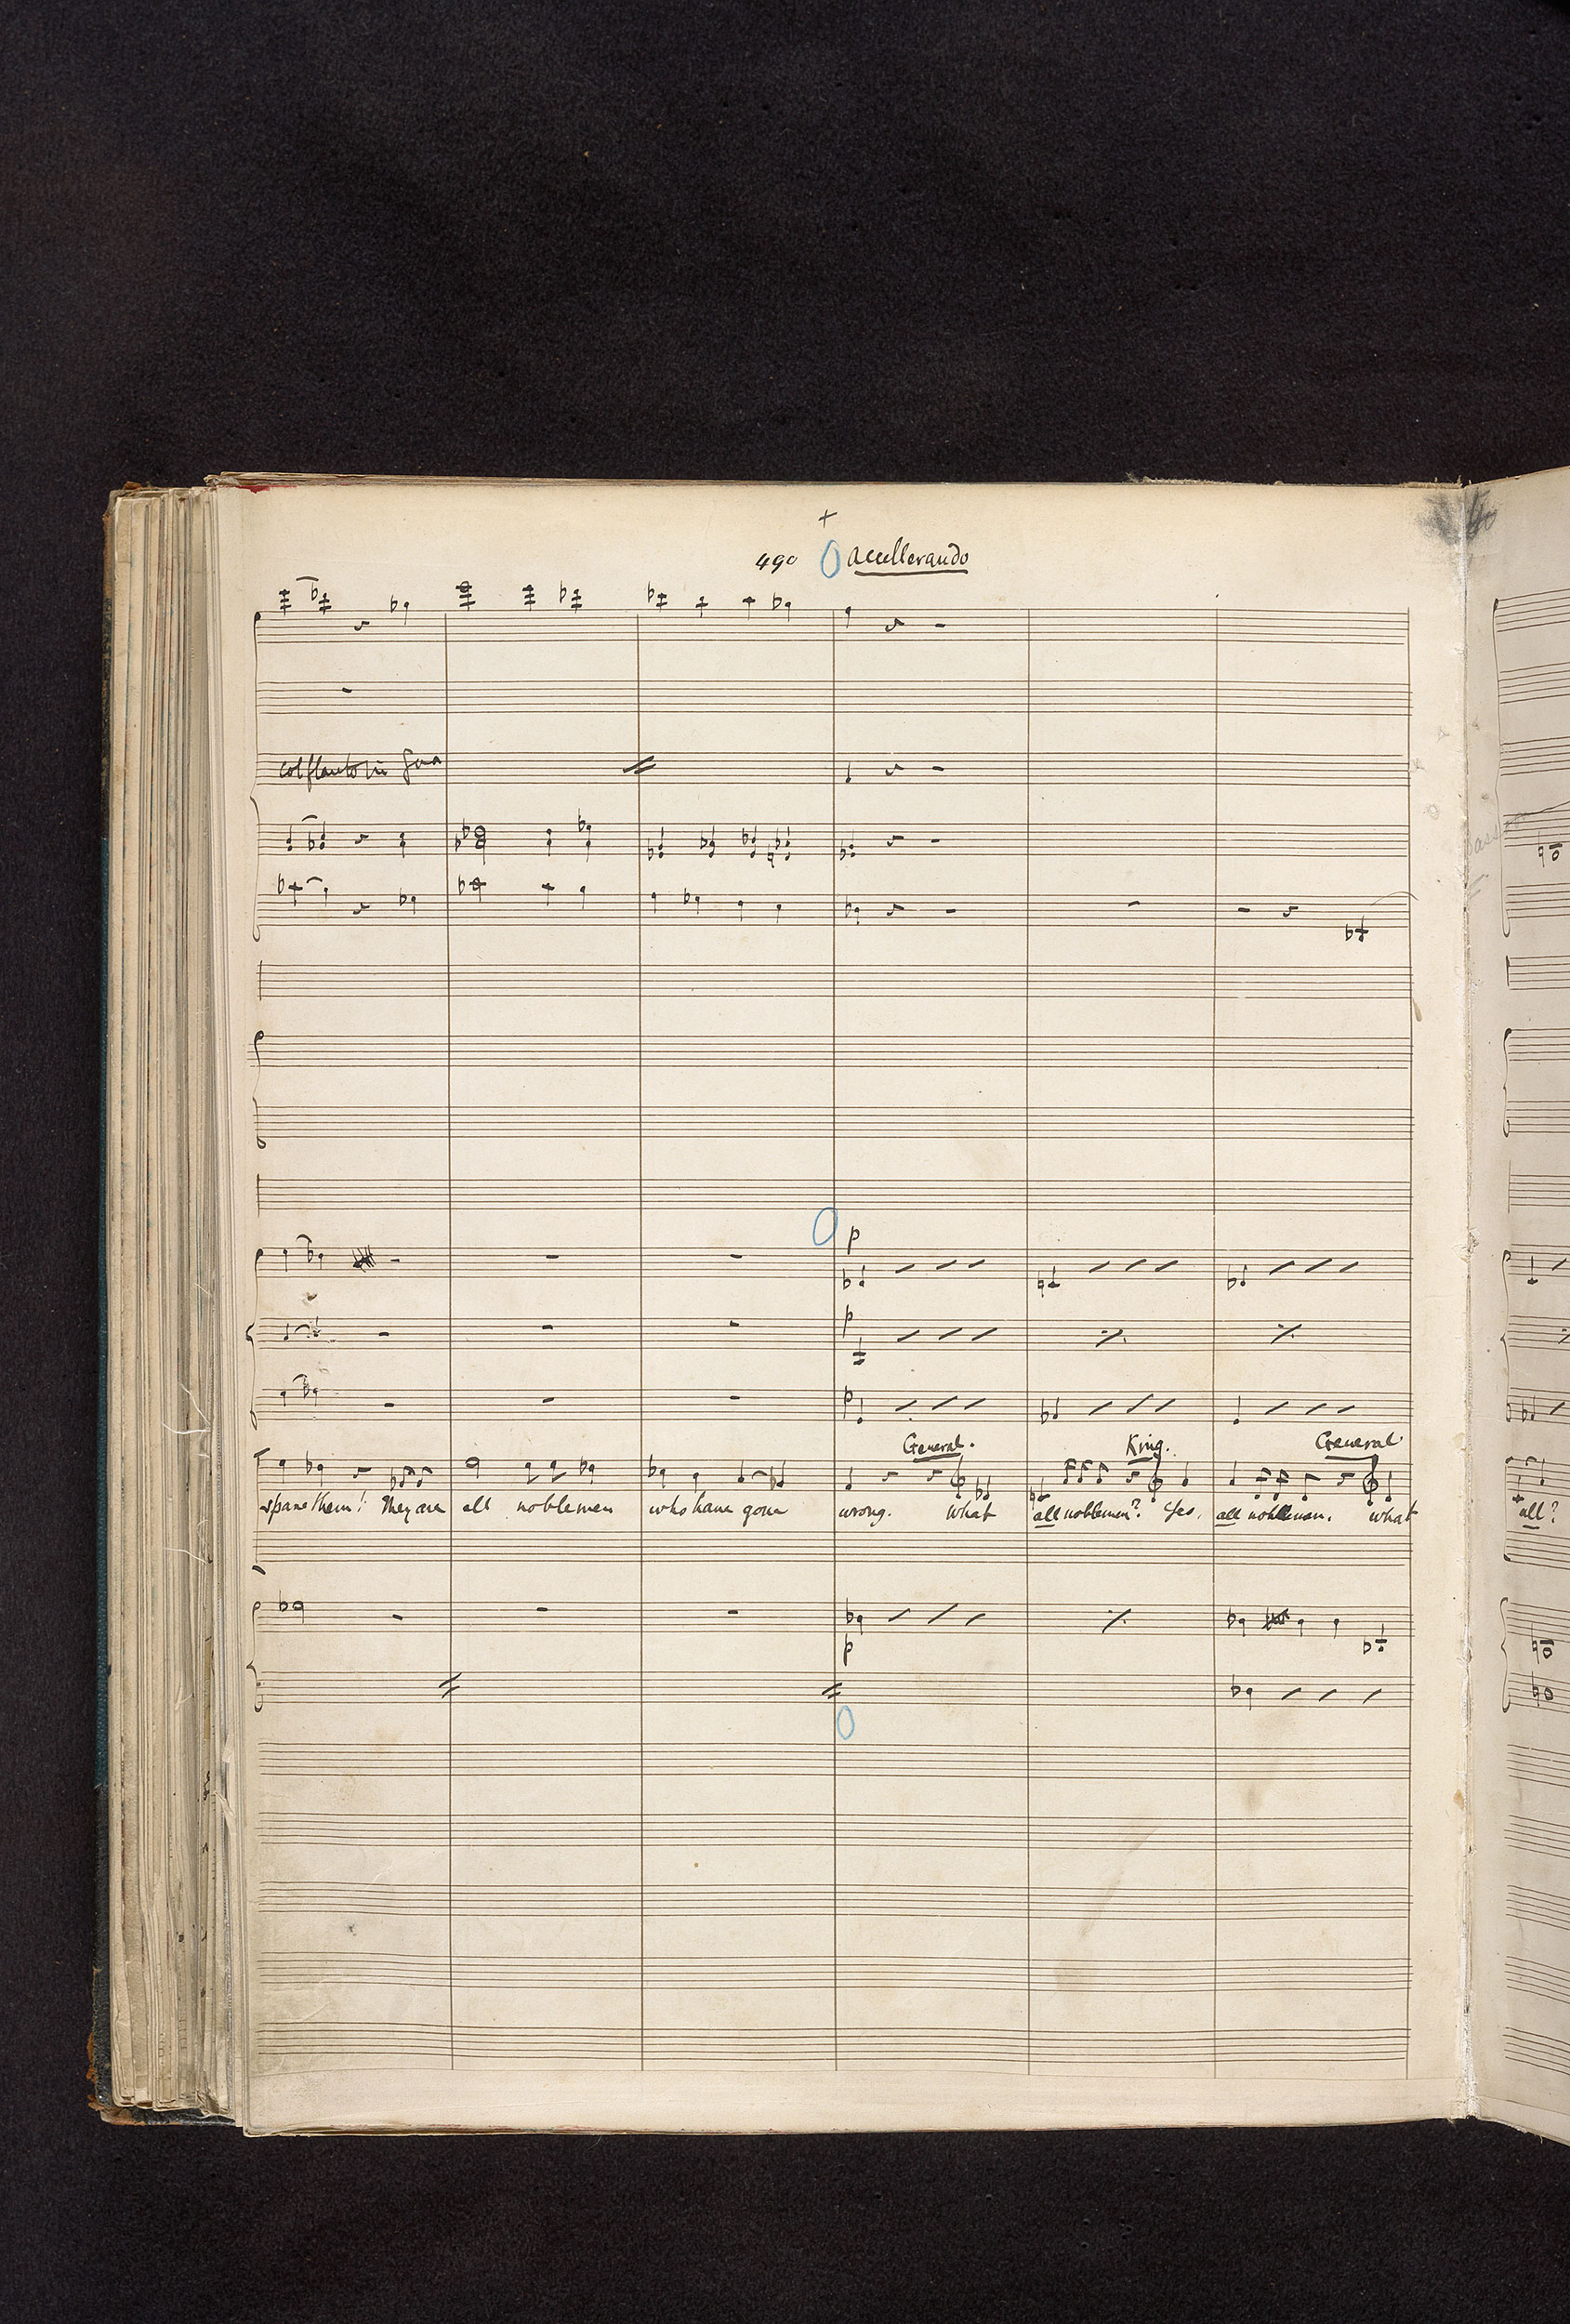 +
490 Accellerando
col flauto in 8va
p
p
p
General. King. General
spare them! They are all noblemen who have gone wrong. What all noblemen? Yes, all noblemen. What
all?
p